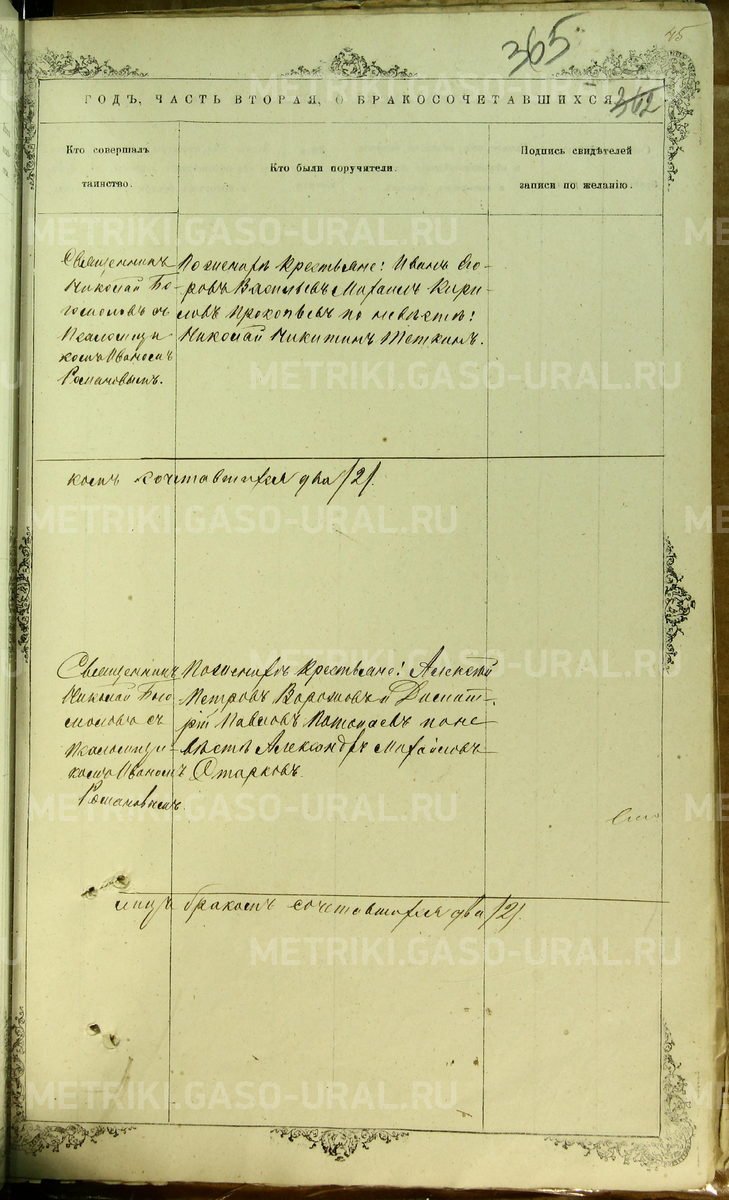 45
365
362
ГОДЪ, ЧАСТЬ ВТОРАЯ, О БРАКОСОЧЕТАВШИХСЯ
Кто совершалъ
таинство.
Кто были поручатели.
Подпись свидѣтелей
записи по желанію.
Священникъ
Николай Бо
гомоловъ съ
Псаломщи
комъ Иваномъ
Романовымъ.
По женихѣ крестьяне: Иванъ Его-
ровъ Васильевъ Михаилъ Кири-
ловъ Прокопьевъ по невѣстѣ:
Николай Никитинъ Теткинъ.
комъ сочетавшихся два /2/.
Священникъ
Николай Бого
моловъ съ
Псаломщи-
комъ Иваномъ
Романовымъ.
По женихѣ крестьяне: Алексѣй
Петровъ и Дмит-
рій Павловъ Потапаевъ по не
вѣстѣ Александръ Михайловъ
Старковъ.
лицъ бракомъ сочетавшихся два /2/.
METRIKI.GASO-URAL.RU